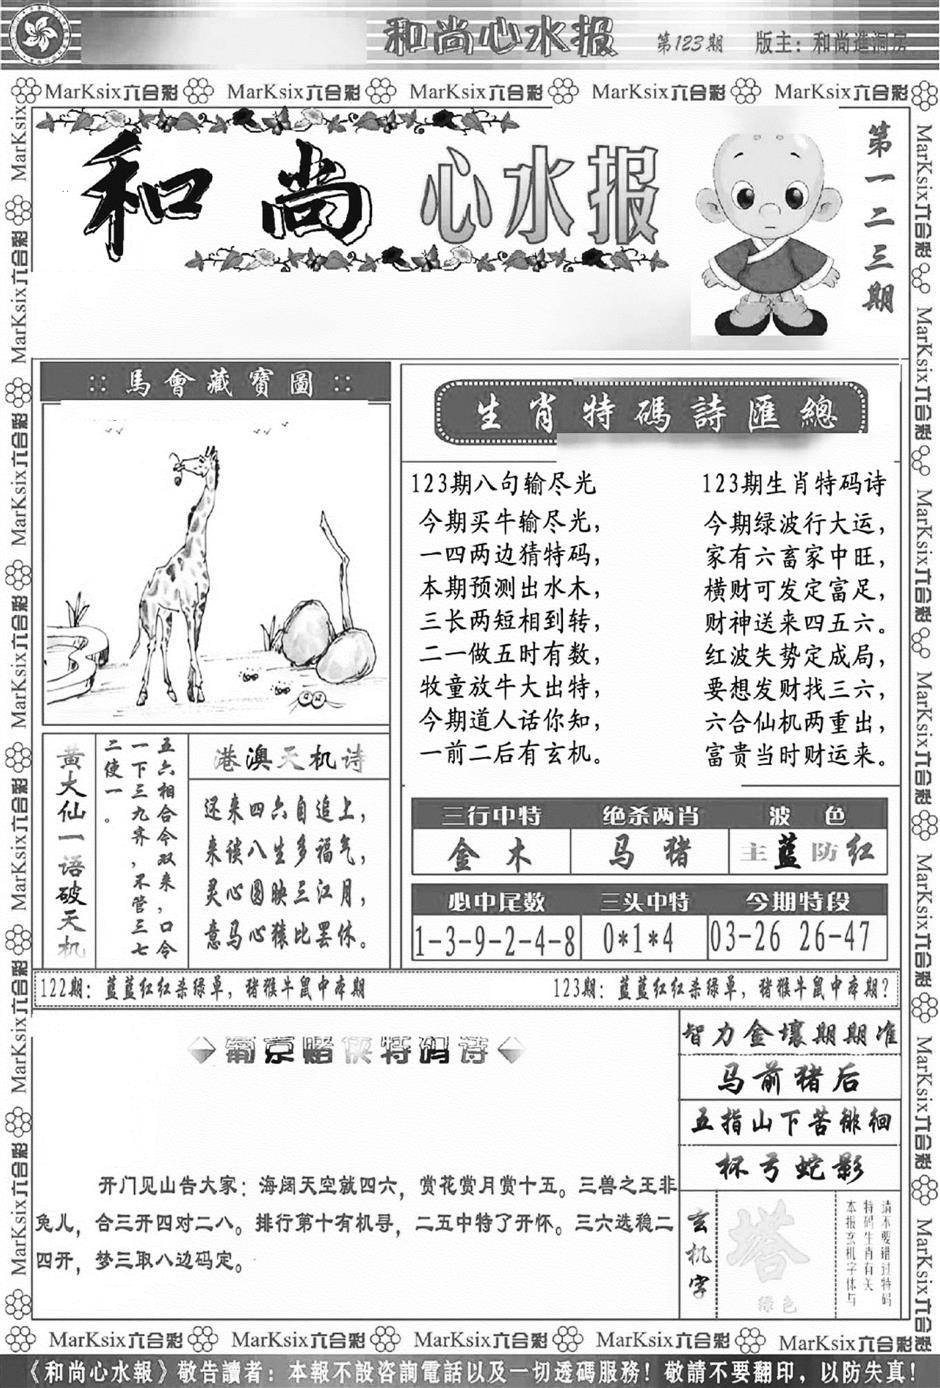 和尚心水报 第123期 版主：和尚進洞房
MarKsix六合彩 MarKsix六合彩 MarKsix六合彩 MarKsix六合彩 MarKsix六合彩
和尚心水报
第一二三期
:: 馬會藏寶圖 ::
生肖特碼詩匯總
123期八句输尽光
今期买牛输尽光，
一四两边猜特码，
本期预测出水木，
三长两短相到转，
二一做五时有数，
牧童放牛大出特，
今期道人话你知，
一前二后有玄机。
123期生肖特码诗
今期绿波行大运，
家有六畜家中旺，
横财可发定富足，
财神送来四五六。
红波失势定成局，
要想发财找三六，
六合仙机两重出，
富贵当时财运来。
黄大仙一语破天机
五六相合今双来，口令
一下三九齐，不管三七
二使一。
港澳天机诗
还来四六自追上，
来谈八生多福气，
灵心圆映三江月，
意马心猿比罢休。
三行中特 绝杀两肖 波色
金木 马猪 主蓝防红
必中尾数 三头中特 今期特段
1-3-9-2-4-8 0*1*4 03-26 26-47
122期：蓝蓝红红杀绿单，猪猴牛鼠中本期
123期：蓝蓝红红杀绿单，猪猴牛鼠中本期？
葡京赌侠特码诗
开门见山告大家：海阔天空就四六，赏花赏月赏十五。三兽之王非
兔儿，合三开四对二八。排行第十有机寻，二五中特了开怀。三六选稳二
四开，梦三取八边码定。
智力金壤期期准
马前猪后
五指山下苦徘徊
杯弓蛇影
玄机字
塔
绿色
请不要错过特码
特码生肖有关
本报玄机字体与
MarKsix六合彩 MarKsix六合彩 MarKsix六合彩 MarKsix六合彩 MarKsix六合彩
《和尚心水報》敬告讀者：本報不設咨詢電話以及一切透碼服務！敬請不要翻印，以防失真！